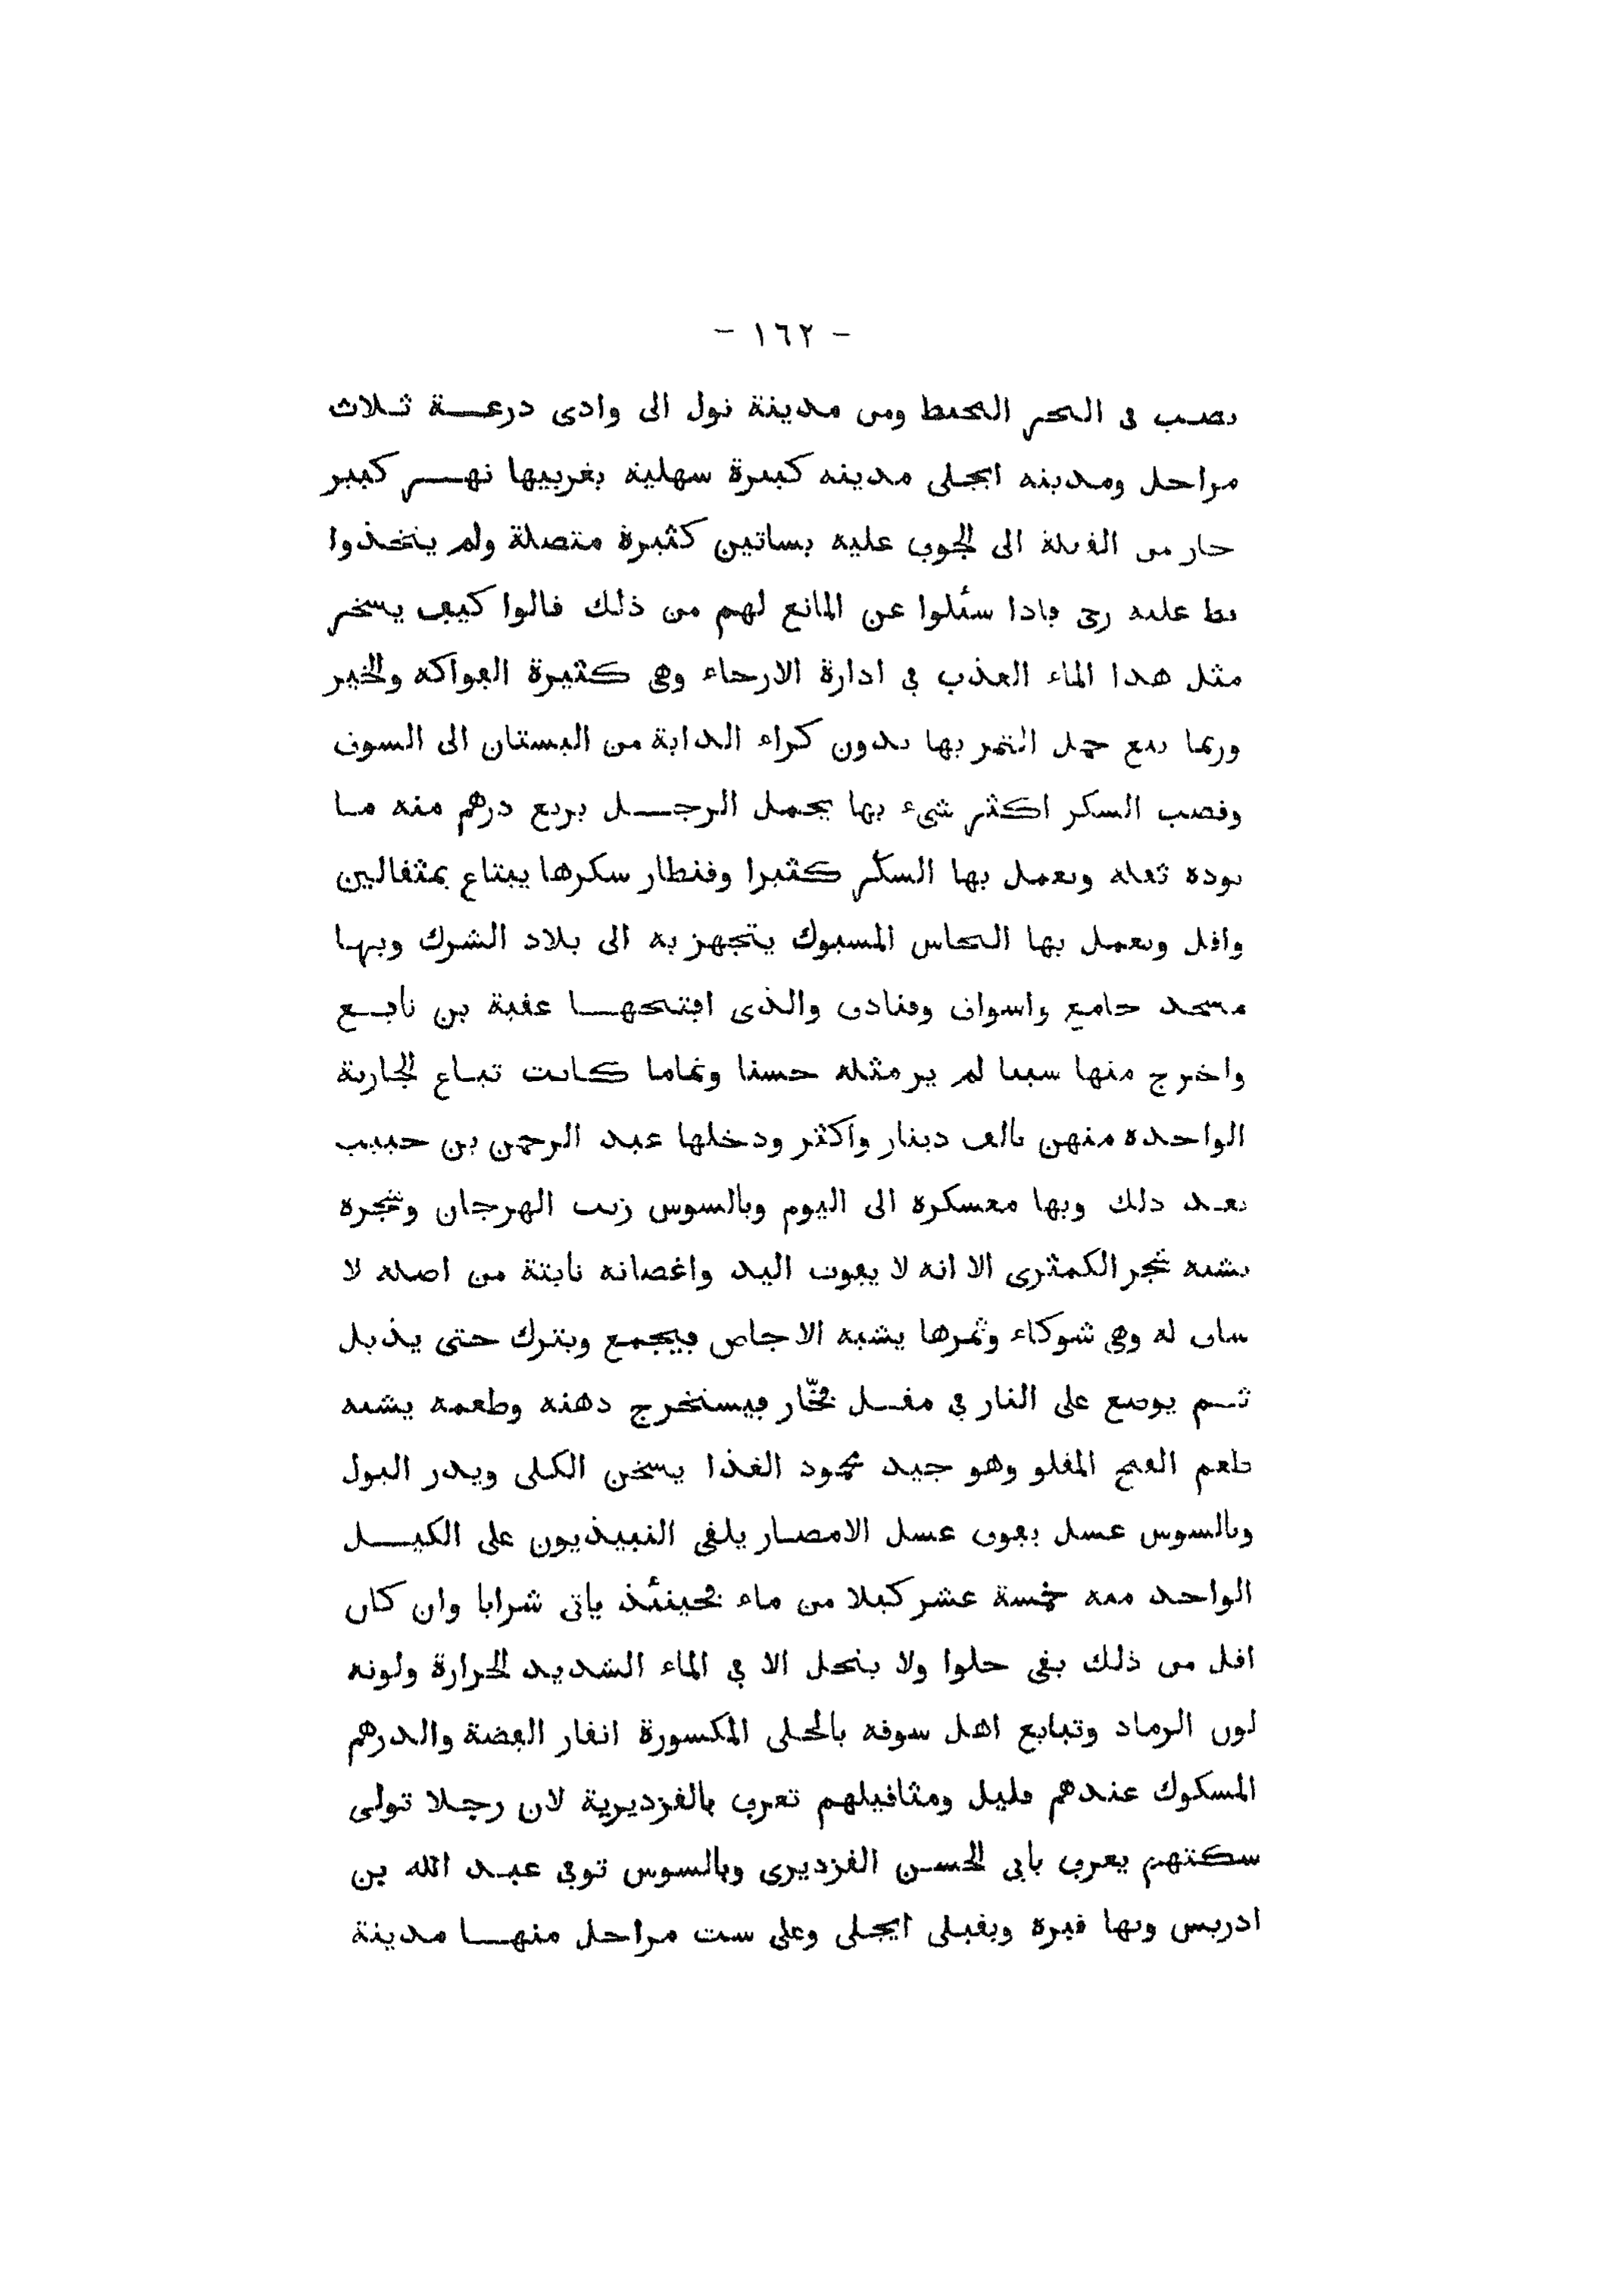 - ١٦٢ -
يصب فى البحر المحيط ومن مدينة نول الى وادى درعة ثلاث
مراحل ومدينة ايجلى مدينة كبيرة سهلية بغربيها نهر كبير
جار من القبلة الى الجوف عليه بساتين كثيرة متصلة ولم يتخذوا
قط عليه رحى فاذا سئلوا عن المانع لهم من ذلك قالوا كيف يسخر
مثل هذا الماء العذب فى ادارة الارحاء وهى كثيرة الفواكه والخير
وربما بيع حمل التمر بها بدون كراء الدابة من البستان الى السوق
وقصب السكر اكثر شىء بها يحمل الرجل بربع درهم منه ما
يوده ثقله ويعمل بها السكّر كثيرا وقنطار سكرها يبتاع بمثقالين
واقل ويعمل بها النحاس المسبوك يتجهز به الى بلاد الشرك وبها
مسجد جامع واسواق وفنادق والذى افتتحها عقبة بن نافع
واخرج منها سبيا لم ير مثله حسنا وتماما كانت تباع الجارية
الواحدة منهن بالف دينار واكثر ودخلها عبد الرحمن بن حبيب
بعد ذلك وبها معسكره الى اليوم وبالسوس زيت الهرجان وشجره
يشبه شجر الكمثرى الا انه لا يفوت اليد واغصانه نابتة من اصله لا
ساق له وهى شوكاء وثمرها يشبه الاجاص فيجمع ويترك حتى يذبل
ثم يوضع على النار فى مقلى فخّار فيستخرج دهنه وطعمه يشبه
طعم القمح المقلو وهو جيد محمود الغذا يسخن الكلى ويدر البول
وبالسوس عسل يفوق عسل الامصار يلقى النبيذيون على الكيل
الواحد منه خمسة عشر كيلا من ماء فحينئذ ياتى شرابا وان كان
اقل من ذلك بقى حلوا ولا ينحل الا فى الماء الشديد الحرارة ولونه
لون الرماد وتبايع اهل سوقه بالحلى المكسورة انقار الفضة والدرهم
المسكوك عندهم قليل ومثاقيلهم تعرف بالقزديرية لان رجلا تولى
سكتهم يعرف بابى الحسن القزديرى وبالسوس توفى عبد الله بن
ادريس وبها قبره وبقبلى ايجلى وعلى ست مراحل منها مدينة